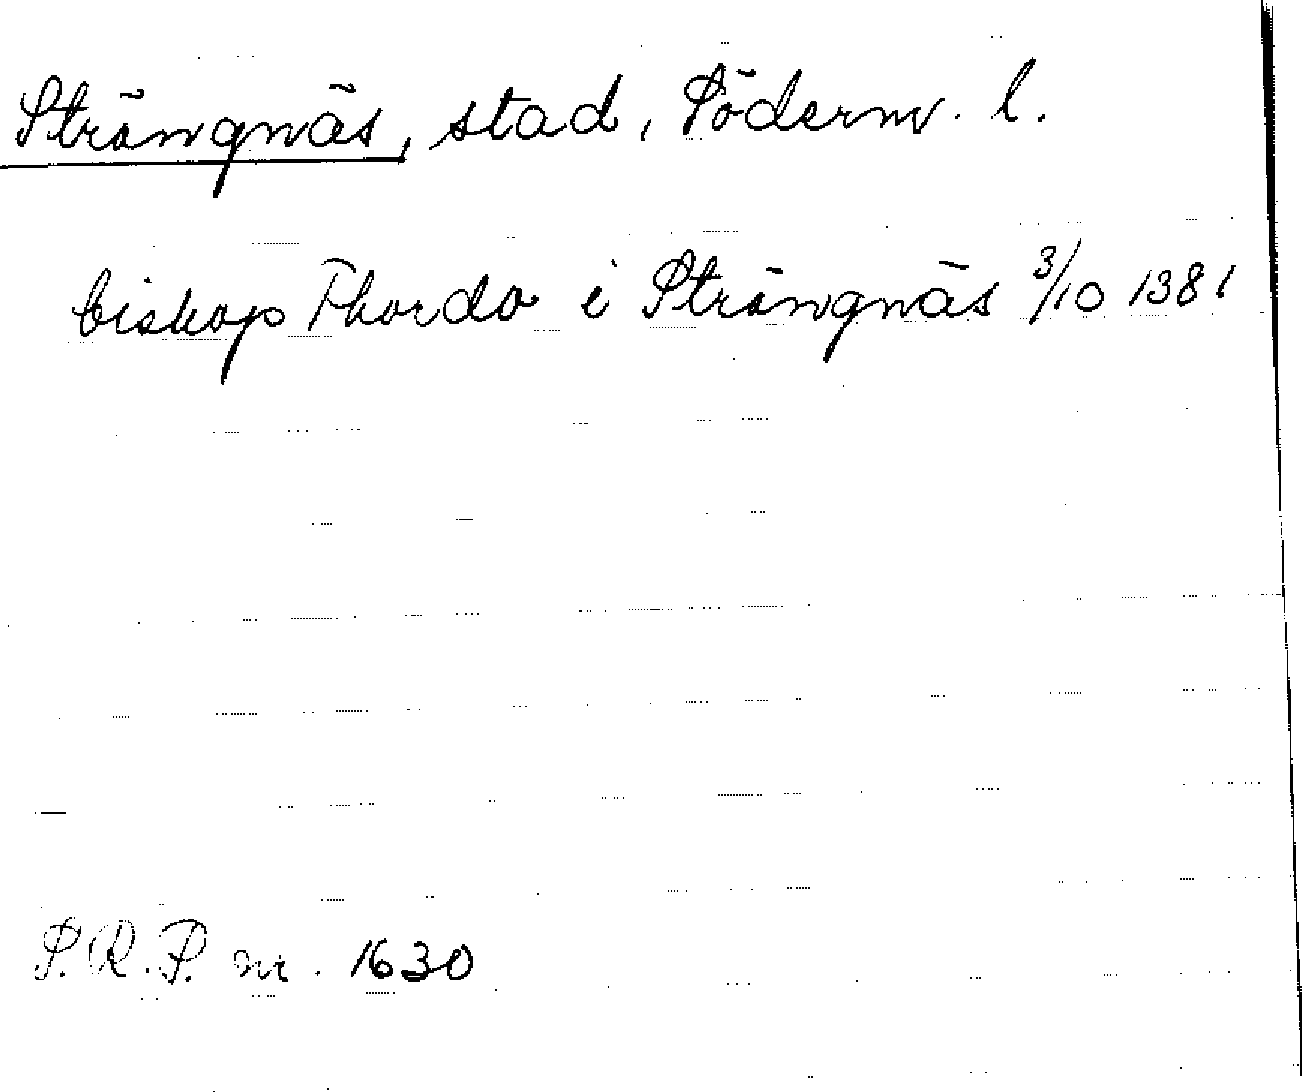 Strängnäs, stad, Söderm. l.
biskop Thordo i Strängnäs 3/10 1381
S.R.P. nr. 1630